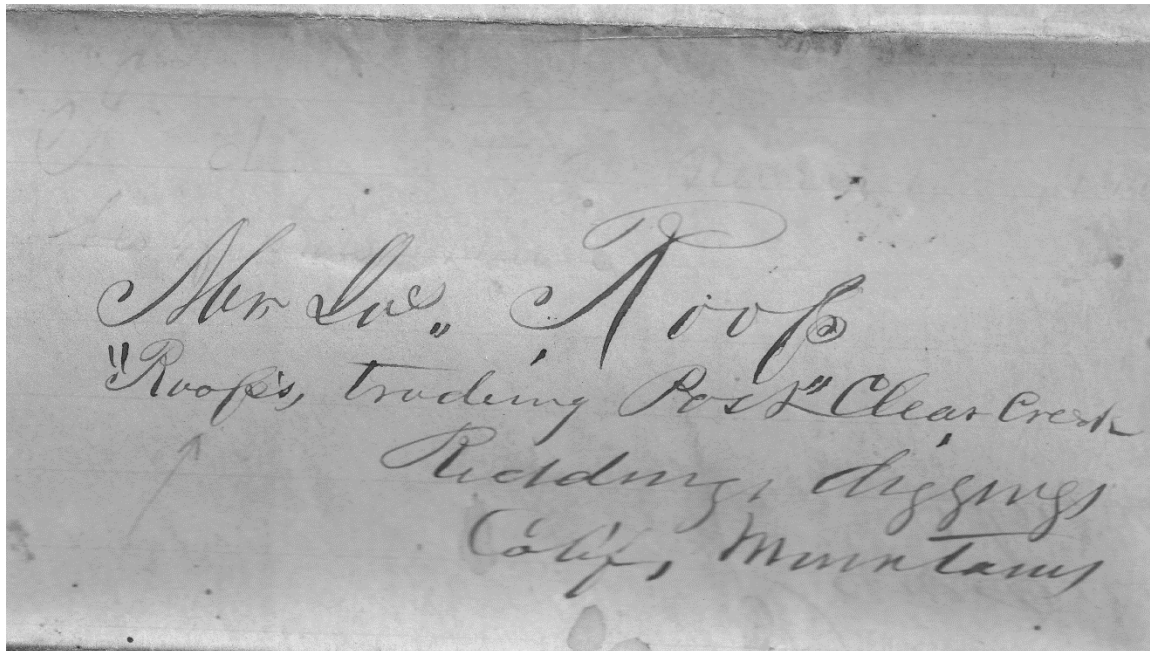 Mr Roop
"Roop's, trading Post" Clear Creek
Redding, diggings
Calif, Mountains